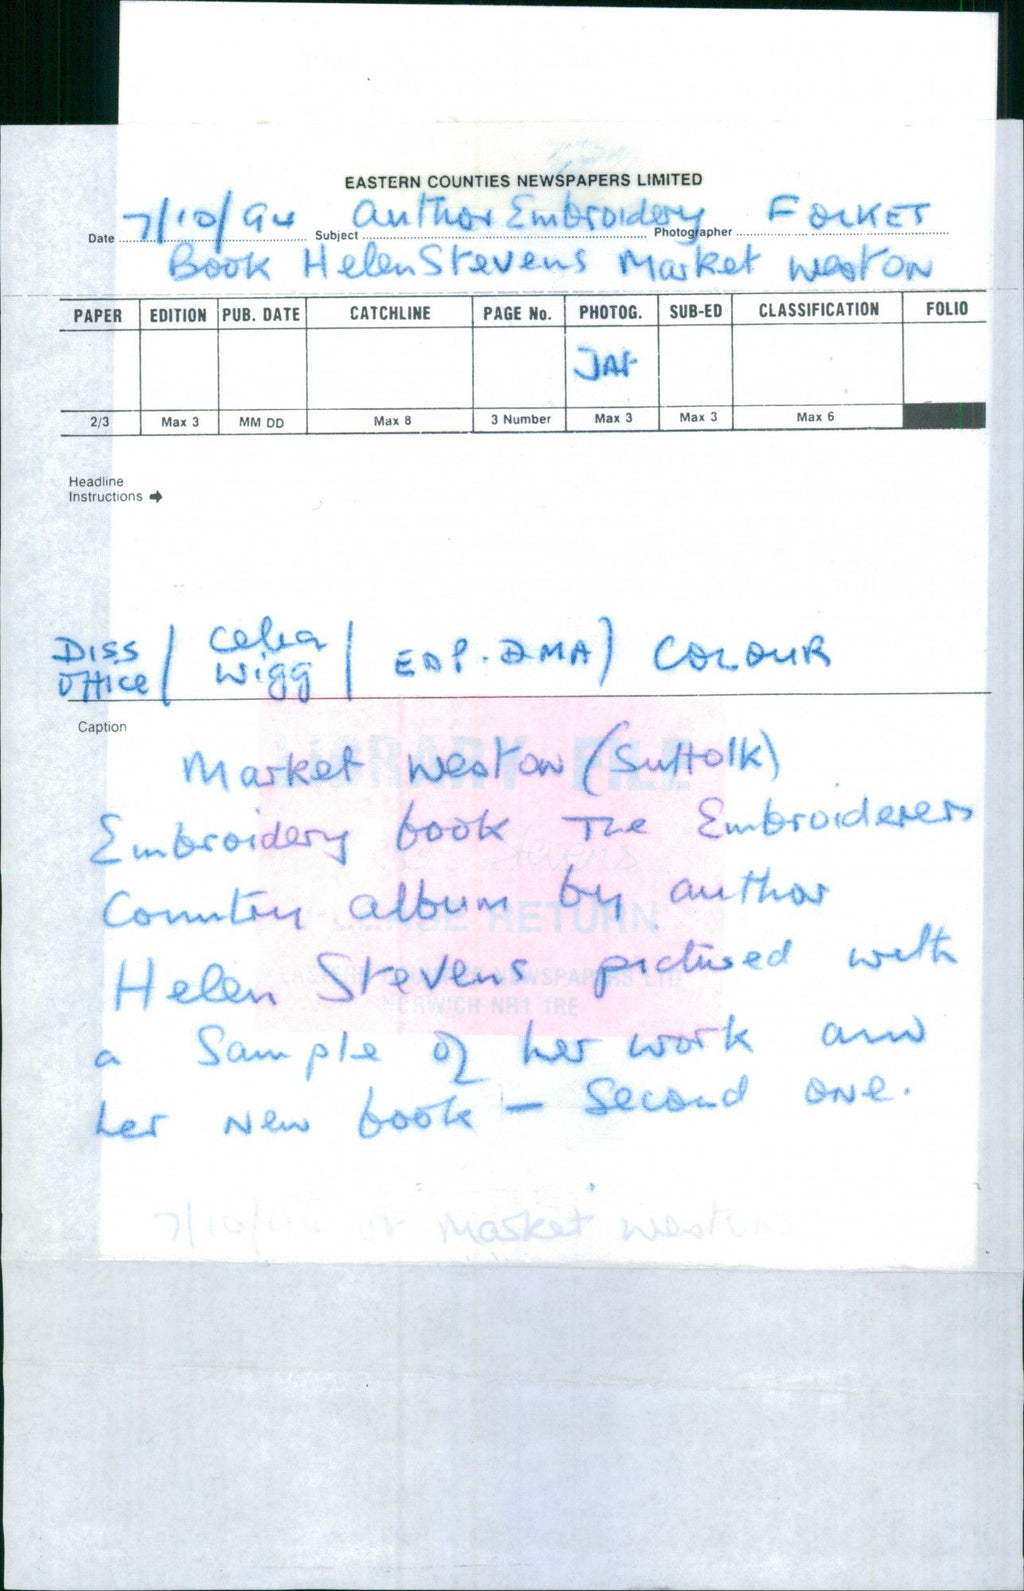 EASTERN COUNTIES NEWSPAPERS LIMITED
Date 7/10/94 Subject Author Embroidery Photographer FOLKET
Book Helen Stevens Market Weston
PAPER EDITION PUB. DATE CATCHLINE PAGE No. PHOTOG. SUB-ED CLASSIFICATION FOLIO
JAF
2/3 Max 3 MM DD Max 8 3 Number Max 3 Max 3 Max 6
Headline
Instructions
DISS / Celia / EDP. DMA) COLOUR
Office Wigg
Caption
Market Weston (Suffolk)
Embroidery book The Embroiderers
Country album by author
Helen Stevens pictured with
a Sample of her work and
her new book — Second one.
LIBRARY FILE
Stevens
PLEASE RETURN
EASTERN COUNTIES NEWSPAPERS LTD
NORWICH NR1 1RE
7/10/94 Market Weston